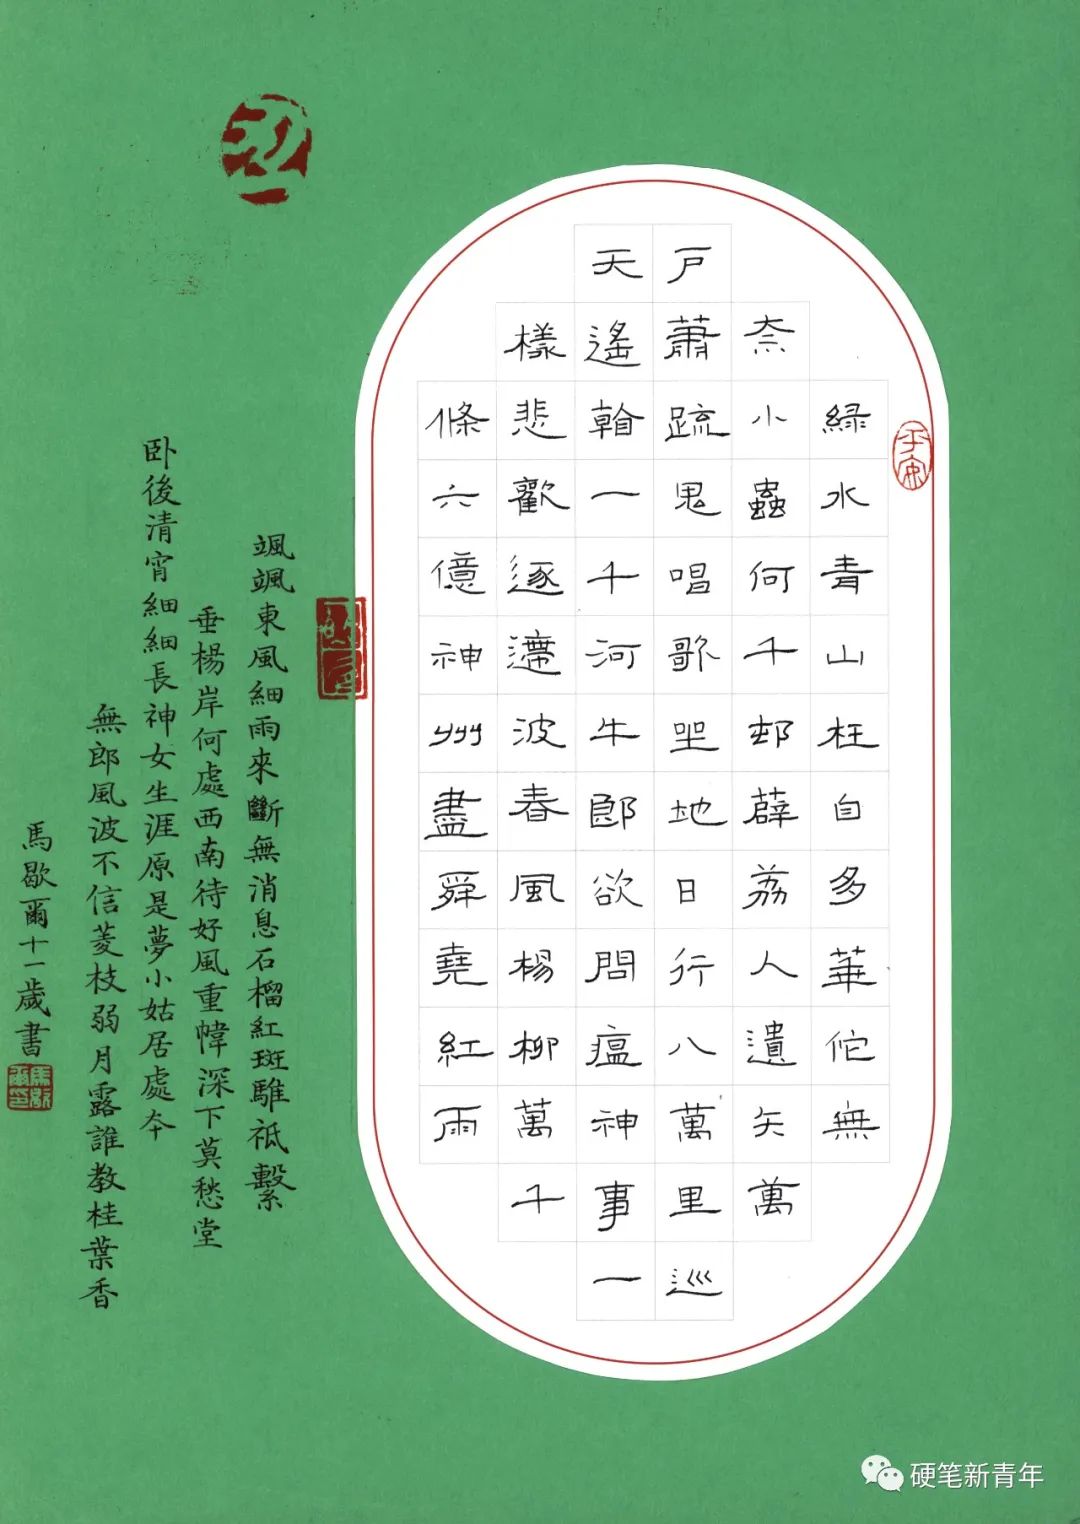 緑水青山枉自多華佗無
奈小蟲何千邨薜荔人遺矢萬
戶蕭疏鬼唱歌坐地日行八萬里巡
天遙看一千河牛郎欲問瘟神事一
樣悲歡逐遰波春風楊柳萬千
條六億神州盡舜堯紅雨
平安
颯颯東風細雨來斷無消息石榴紅斑騅祗繫
垂楊岸何處西南待好風重幃深下莫愁堂
卧後清宵細細長神女生涯原是夢小姑居處夲
無郎風波不信菱枝弱月露誰教桂葉香
馬歇爾十一歲書
硬笔新青年